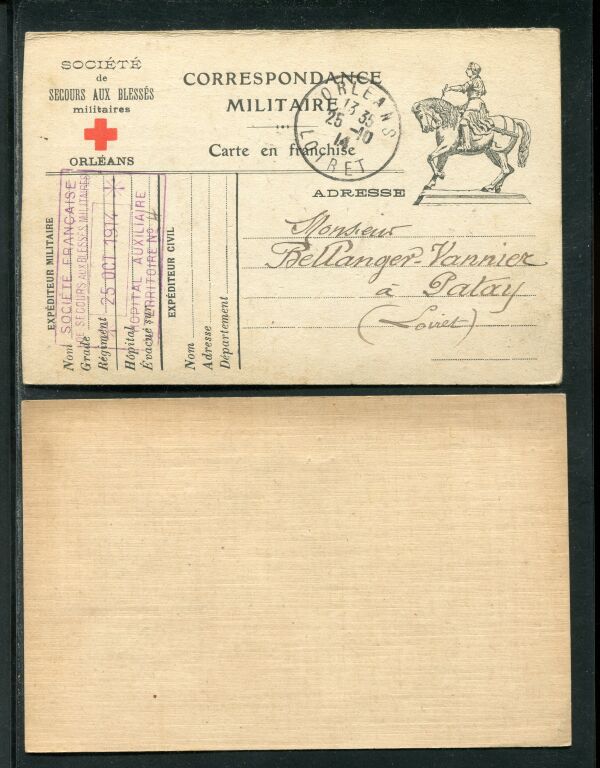 SOCIÉTÉ
de
SECOURS AUX BLESSÉS
militaires
ORLÉANS
CORRESPONDANCE
MILITAIRE
Carte en franchise
ORLEANS
13 35
25 -10
14
LOIRET
ADRESSE
Monsieur
Bellanger-Vannier
à Patay
(Loiret)
EXPÉDITEUR MILITAIRE
Nom
Grade
Régiment
Hôpital
Évacué sur
EXPÉDITEUR CIVIL
Nom
Adresse
Département
SOCIÉTÉ FRANÇAISE
DE SECOURS AUX BLESSÉS MILITAIRES
25 OCT 1914
HOPITAL AUXILIAIRE
TERRITOIRE No 4